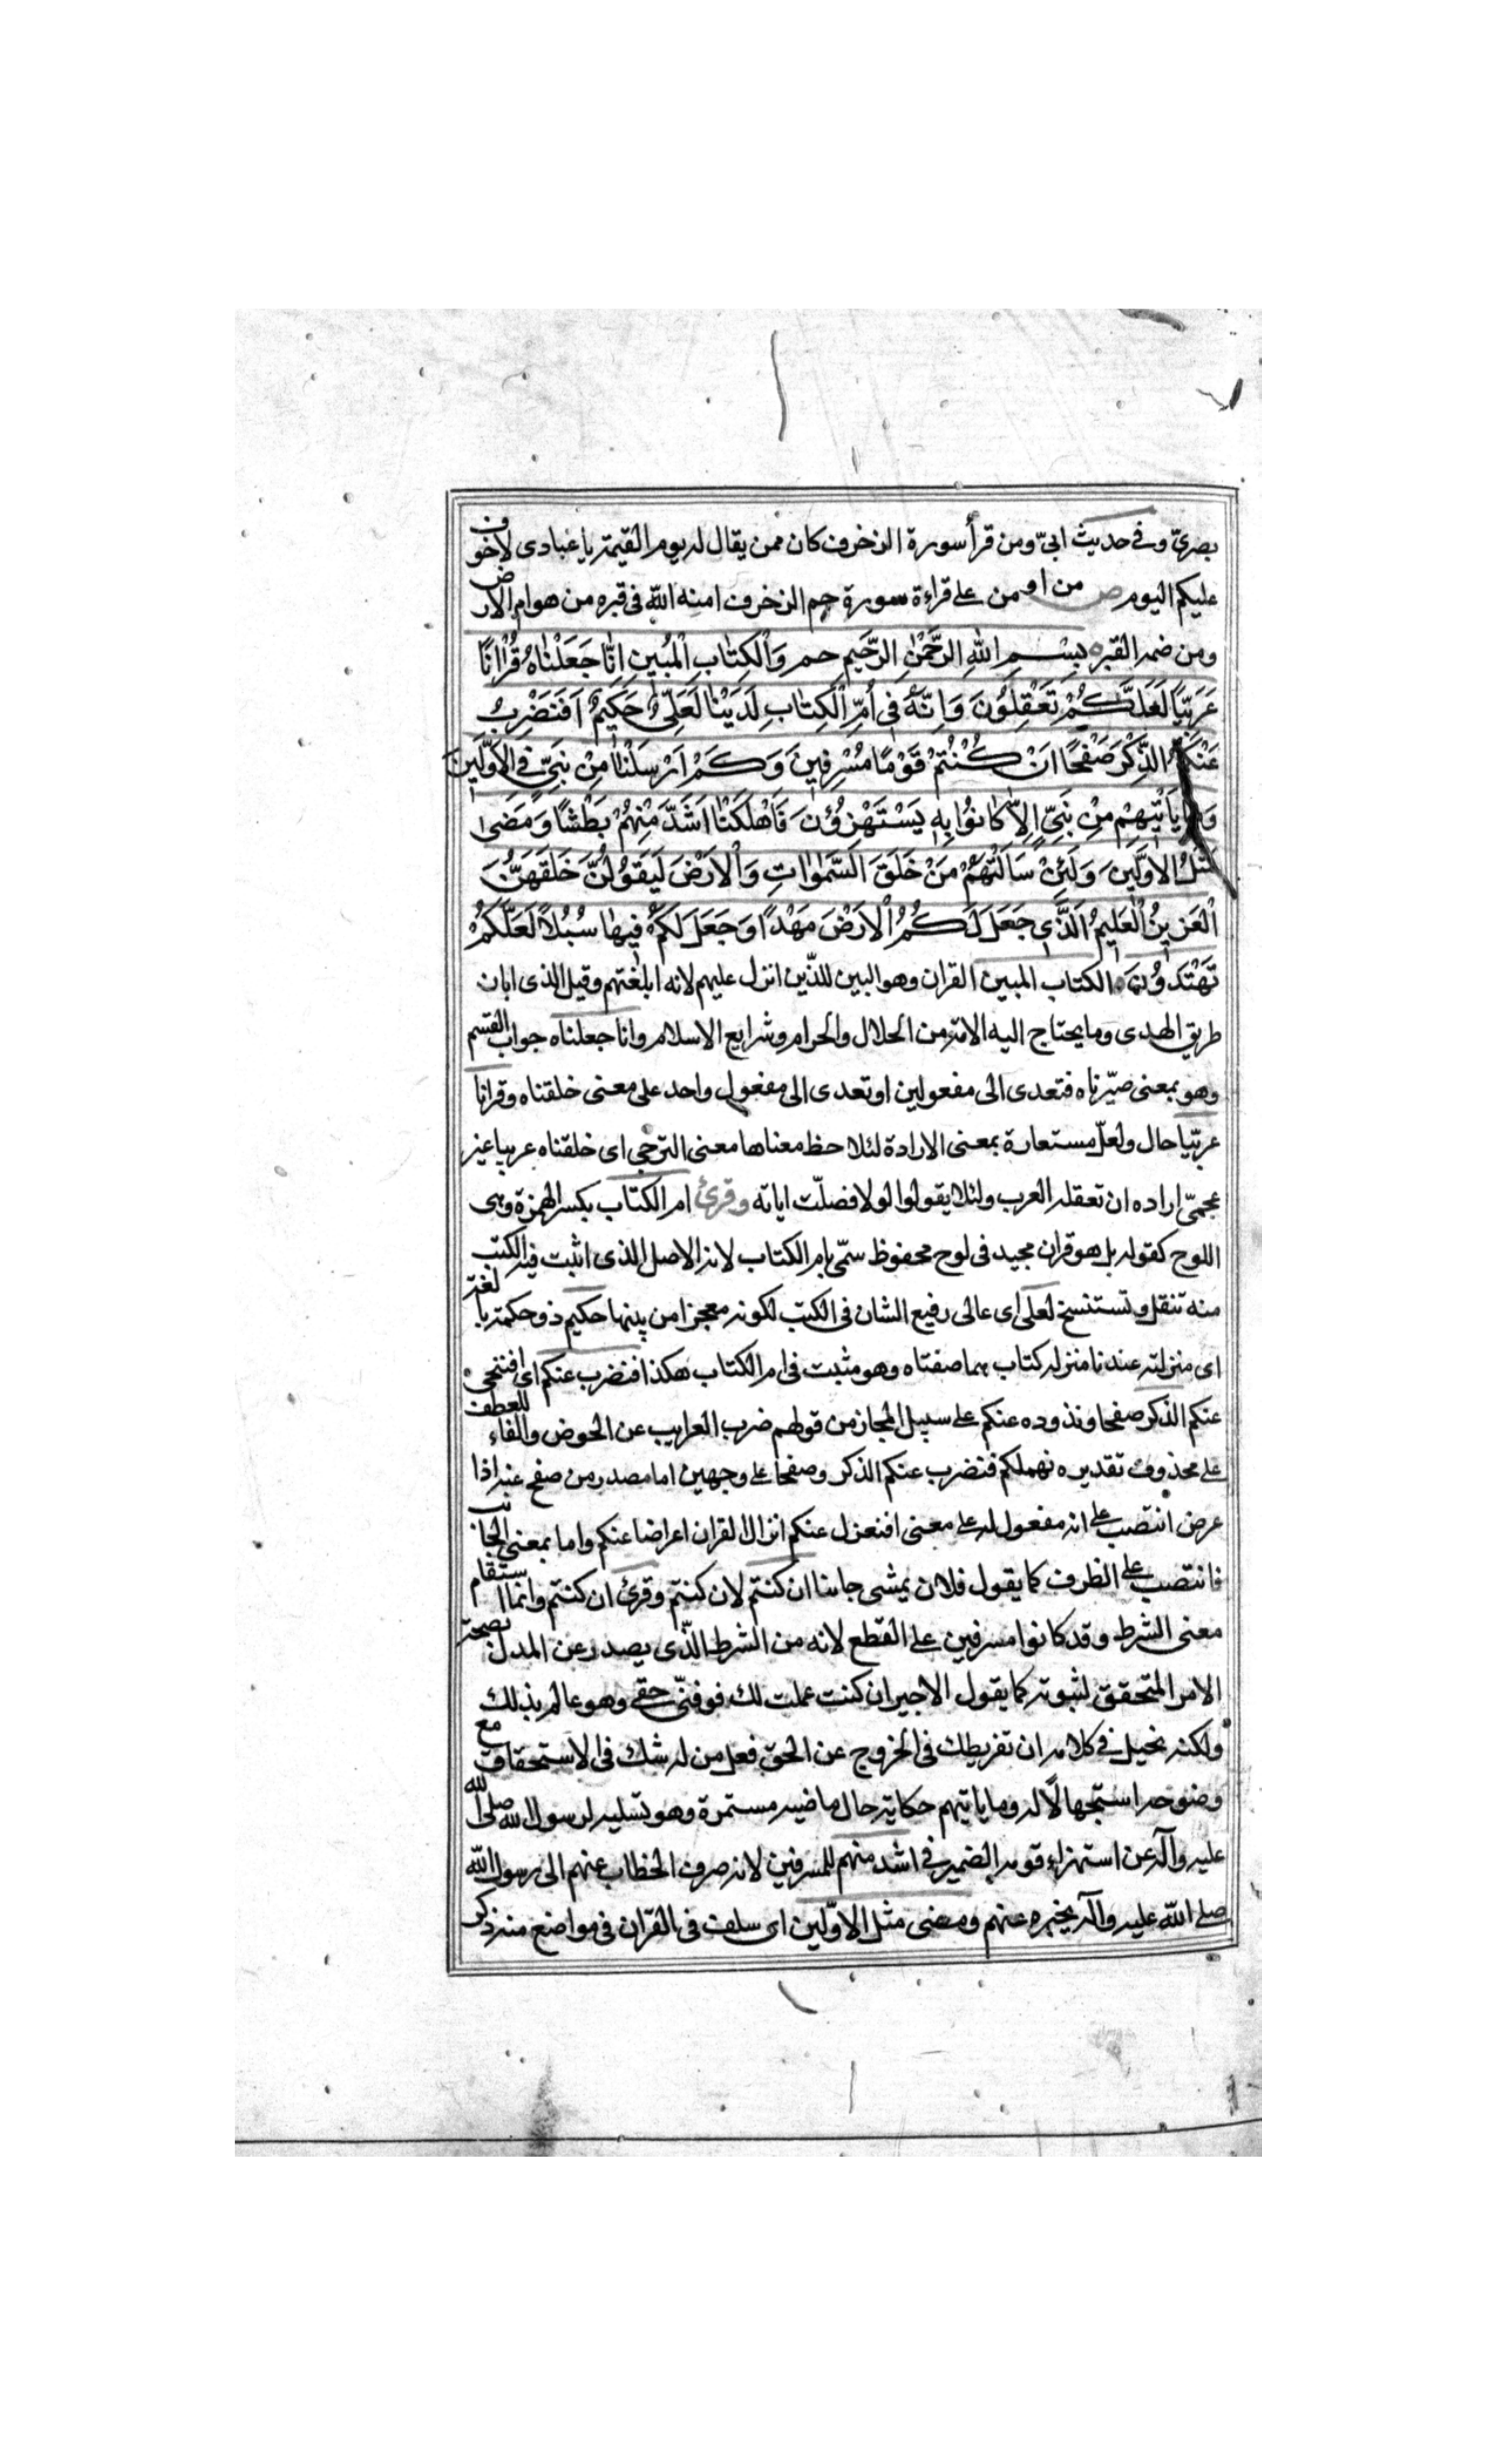 بصرىّ وفى حديث ابىّ ومن قرأ سورة الزخرف كان ممن يقال له يوم القيمة يا عبادى لا خوف
عليكم اليوم ص من اومن على قراءة سورة حم الزخرف امنه الله فى قبره من هوام الارض
ومن ضمة القبر بِسْمِ اللهِ الرَّحْمٰنِ الرَّحيمِ حم وَالْكِتٰابِ الْمُبينِ اِنّٰا جَعَلْنٰاهُ قُرْاٰنًا
عَرَبِيًّا لَعَلَّكُمْ تَعْقِلُونَ وَاِنَّهُ فى اُمِّ الْكِتٰابِ لَدَيْنٰا لَعَلِىٌّ حَكيمٌ اَفَنَضْرِبُ
عَنْكُمُ الذِّكْرَ صَفْحًا اَنْ كُنْتُمْ قَوْمًا مُسْرِفينَ وَكَمْ اَرْسَلْنٰا مِنْ نَبِىٍّ فِى الْاَوَّلينَ
وَمٰا يَأْتيهِمْ مِنْ نَبِىٍّ اِلاّٰ كٰانُوا بِهِ يَسْتَهْزِؤُنَ فَاَهْلَكْنٰا اَشَدَّ مِنْهُمْ بَطْشًا وَمَضىٰ
مَثَلُ الْاَوَّلينَ وَلَئِنْ سَاَلْتَهُمْ مَنْ خَلَقَ السَّمٰوٰاتِ وَالْاَرْضَ لَيَقُولُنَّ خَلَقَهُنَّ
الْعَزيزُ الْعَليمُ اَلَّذى جَعَلَ لَكُمُ الْاَرْضَ مَهْدًا وَجَعَلَ لَكُمْ فيهٰا سُبُلاً لَعَلَّكُمْ
تَهْتَدُونَ الكتاب المبين القران وهو البين للذين انزل عليهم لانه ابلغتهم وقيل الذى ابان
طريق الهدى وما يحتاج اليه الامة من الحلال والحرام وشرايع الاسلام وانا جعلناه جواب القسم
وهو بمعنى صيّرناه فتعدى الى مفعولين او تعدى الى مفعول واحد على معنى خلقناه وقرانا
عربيّا حال ولعلّ مستعارة بمعنى الارادة لتلاحظ معناها معنى الترجى اى خلقناه عربيا غير
عجمىّ اراده ان تعقله العرب ولئلا يقولوا لولا فصلّت اياته وقرئ ام الكتاب بكسر الهمزة وهى
اللوح كقوله بل هو قران مجيد فى لوح محفوظ سمّى بام الكتاب لانه الاصل الذى اثبت فيه الكتب
منه تنقل وتستنسخ لعلى اى عالى رفيع الشان فى الكتب لكونه معجزا من بينها حكيم ذو حكمة بالغة
اى منزلته عندنا منزلة كتاب هما صفتاه وهو مثبت فى ام الكتاب هكذا افنضرب عنكم اى افننحى
عنكم الذكر صفحا ونذوده عنكم على سبيل المجاز من قولهم ضرب الغرايب عن الحوض والفاء للعطف
على محذوف تقديره نهملكم فنضرب عنكم الذكر وصفحا على وجهين اما مصدر من صفح عنه اذا
عرض انتصب على انه مفعول له على معنى افنعزل عنكم انزال القران اعراضا عنكم واما بمعنى الجانب
فانتصب على الظرف كما يقول فلان يمشى جانبا ان كنتم لان كنتم وقرئ ان كنتم وانما استقام
معنى الشرط وقد كانوا مسرفين على القطع لانه من الشرط الذّى يصدر عن المدل بصحة
الامر المتحقق لثبوته كما يقول الاجير ان كنت عملت لك فوفنّى حقى وهو عالم بذلك
ولكنه يخيل فى كلامه ان تفريطك فى الخروج عن الحق فعل من له شك فى الاستحقاق مع
وضوحه استجهالاً له وما ياتيهم حكاية حال ماضيه مستمرة وهو تسليه لرسول الله صلى الله
عليه وآله عن استهزاء قومه الضمير فى اشد منهم للمسرفين لانه صرف الخطاب عنهم الى رسول الله
صلى الله عليه وآله يخبره عنهم ومضى مثل الاوّلين اى سلف فى القران فى مواضع منه ذكر